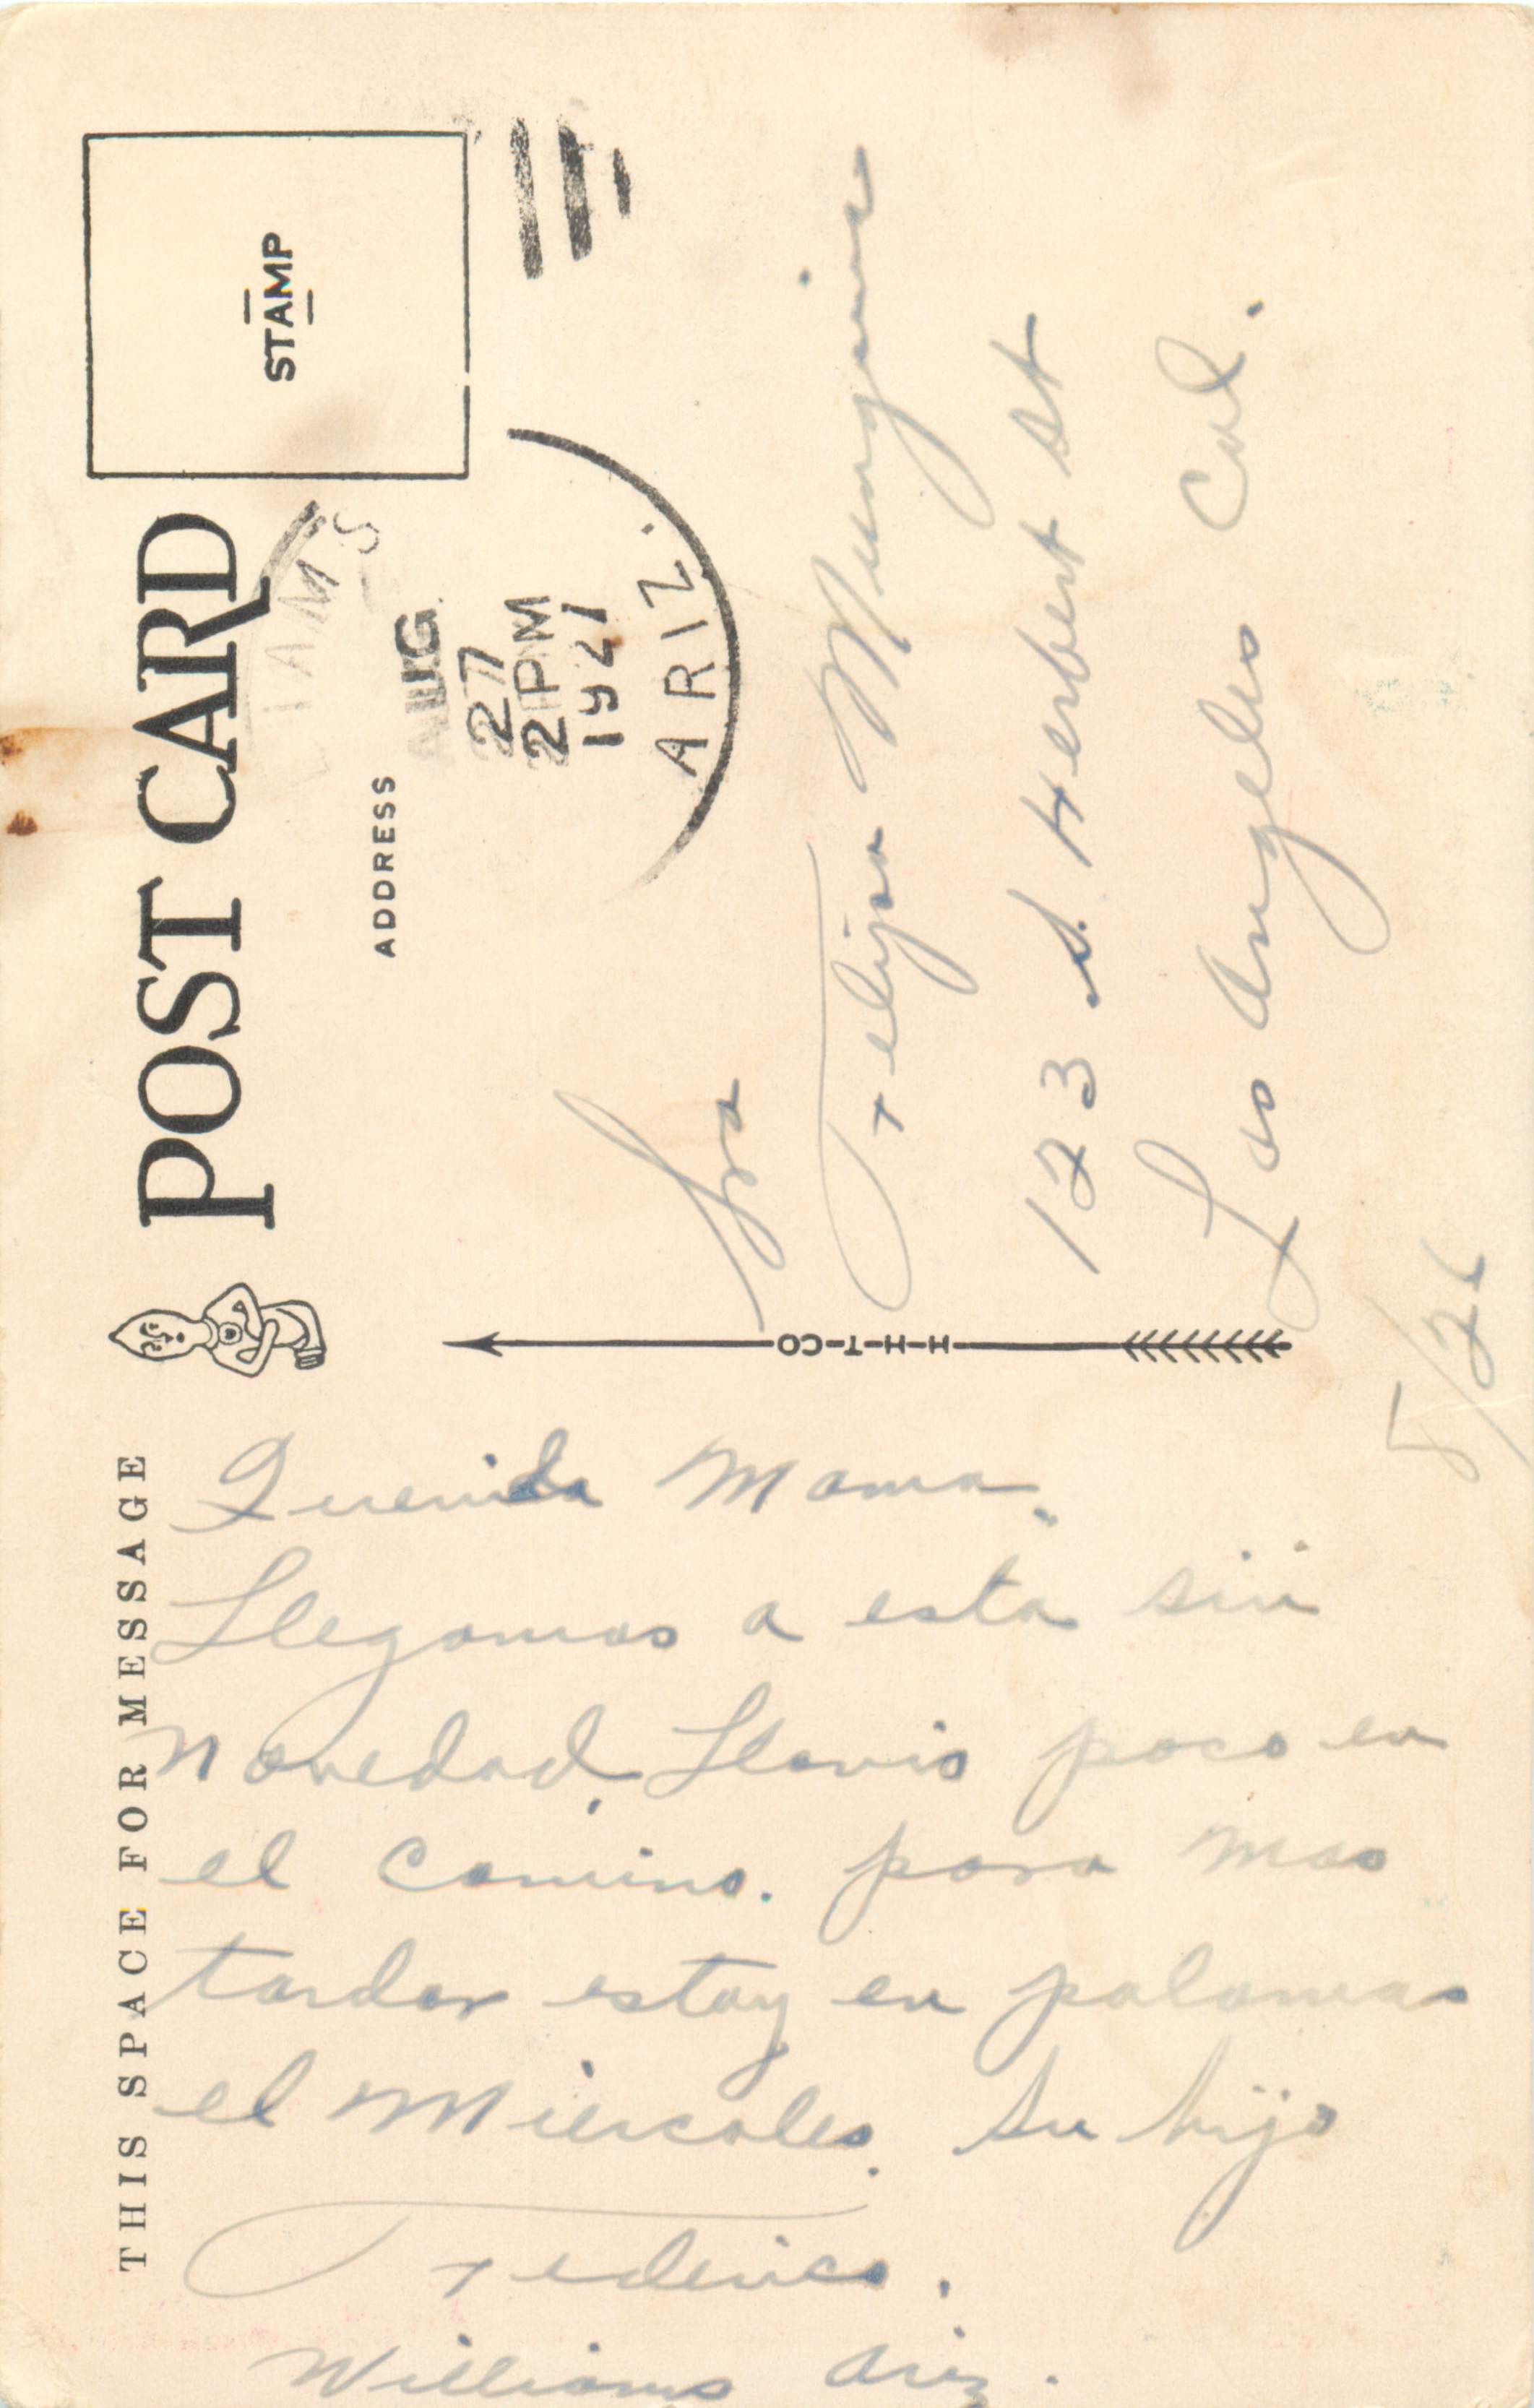 THIS SPACE FOR MESSAGE
POST CARD
ADDRESS
STAMP
AUG
27
2 PM
ARIZ.
H-H-T-CO
Querida Mama.
Llegamos a esta sin
novedad, Llovio poco en
el camino. para mas
tardar estoy en palomas
el Miercoles. Su hijo
Federico.
Williams Ariz.
Sra
Felipa Mungia
123 S. Herbert St
Los Angeles Cal.